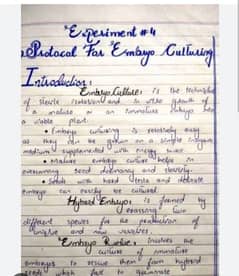 "Experiment #4
Protocol For "Embryo Culturing
Introduction:
Embryo Culture: is the technique
of sterile isolation and in vitro growth of
a mature or an immature embryo
a viable plant.
• Embryo culturing is relatively easy
as they can be grown on a simple
medium supplemented with energy
• Mature embryo culture helps in
overcoming seed dormancy and sterility.
• Seeds with hard testa and delicate
embryo can easily be cultured.
Hybrid Embryo: is formed by
crossing two
different species for the production of
unique and new varieties.
"Embryo Rescue: involves the
culture of immature
embryos to rescue them from hybrid
seeds which fail to germinate